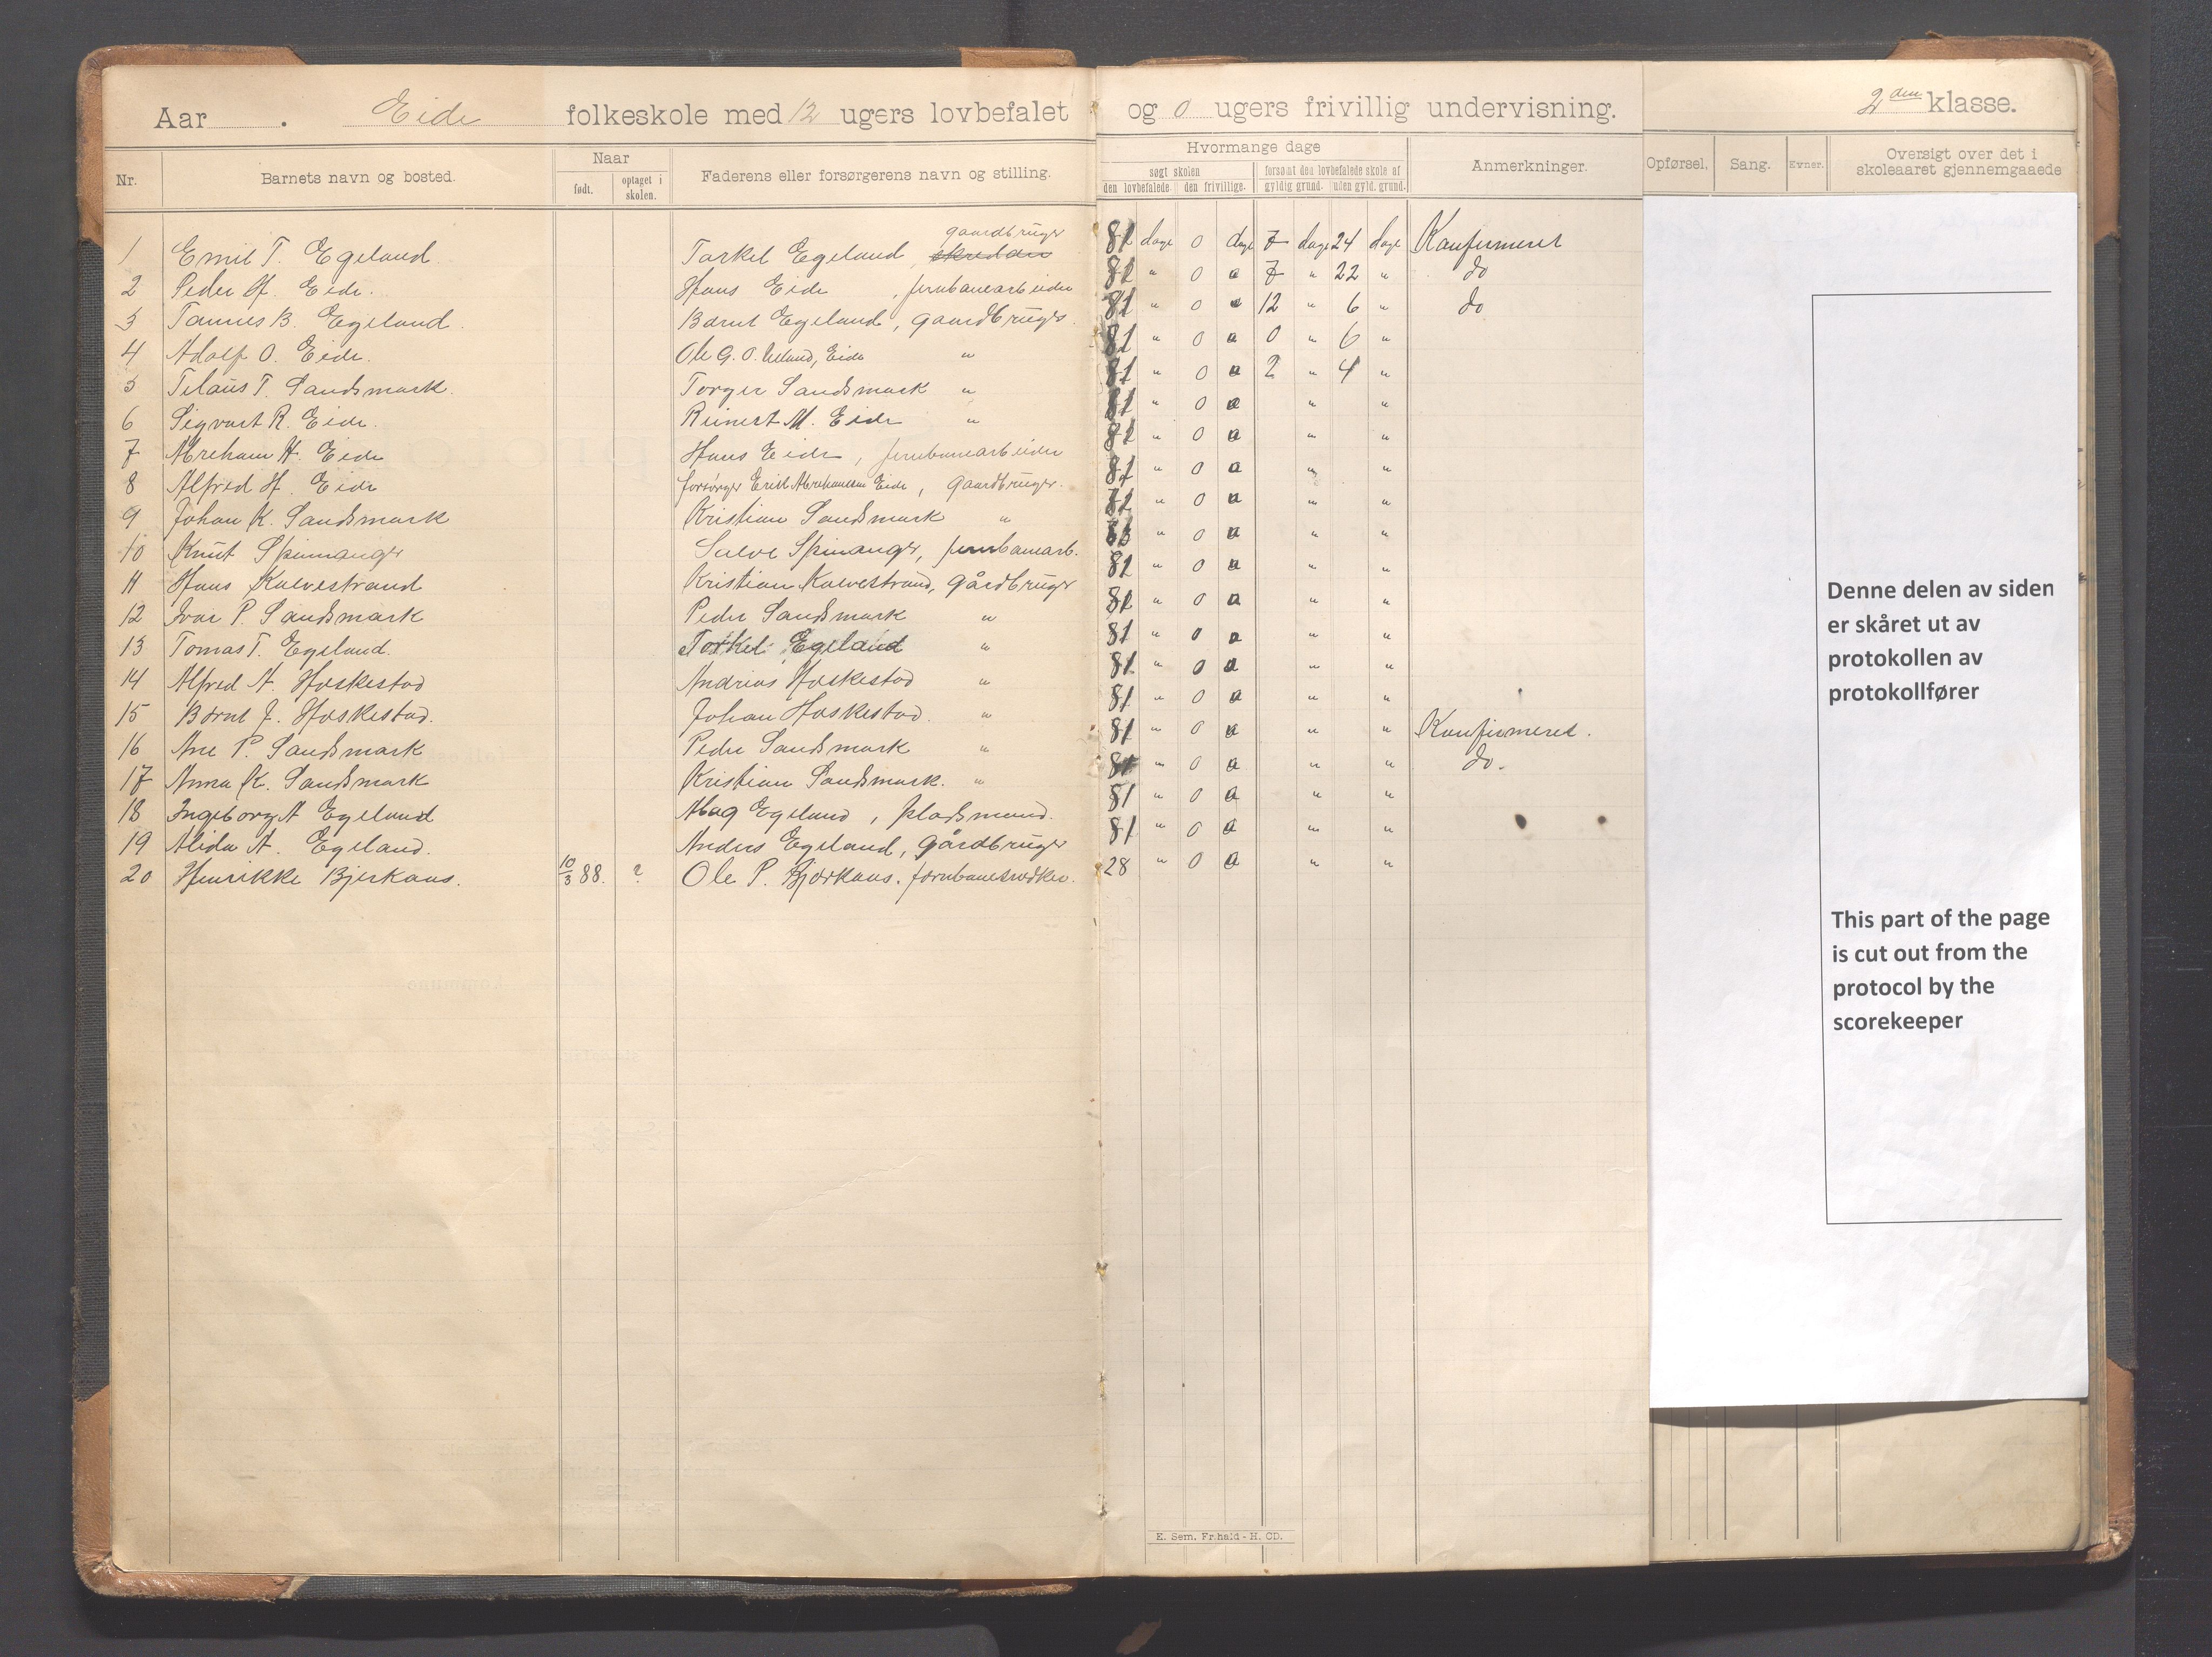 Aar . Eide folkeskole med 12 ugers lovbefalet og 0 ugers frivillig undervisning. 2den klasse.
Nr. Barnets navn og bosted. Naar født. optaget i skolen. Faderens eller forsørgerens navn og stilling. Hvormange dage søgt skolen den lovbefalede. den frivillige. forsømt den lovbefalede skole af gyldig grund. uden gyld. grund. Anmerkninger. Opførsel. Sang. Evner. Oversigt over det i skoleaaret gjennemgaaede
gaardbruger
1 Emil T. Egeland. Torkel Egeland, 81 dage 0 dage 7 dage 24 dage Konfirmeret
2 Peder H. Eide. Hans Eide, jernbanearbeider 81 " 0 " 7 " 22 " do
3 Tønnes B. Egeland. Bernt Egeland, gaardbruger. 81 " 0 " 12 " 6 " do
4 Adolf O. Eide. Ole G. O. Ueland, Eide " 81 " 0 " 0 " 6 "
5 T. Sandsmark. Torger Sandsmark " 81 " 0 " 2 " 4 "
6 Sigvart R. Eide. Reinert M. Eide " 81 " 0 " " "
7 Abreham H. Eide Hans Eide, jernbanearbeider 81 " 0 " " "
8 Alfred H. Eide forsørger Eril Abrahamsen Eide, gaardbruger. 81 " 0 " " "
9 Johan K. Sandsmark Kristian Sandsmark " 81 " 0 " " "
10 Knut Spinnanger Salve Spinanger, jernbanearb. " 0 " " "
11 Hans Kalvestrand Kristian Kalvestrand, gårdbruger 81 " 0 " " "
12 Ivar P. Sandsmark Peder Sandsmark " 81 " 0 " " "
13 Tomas T. Egeland. Torkel Egeland " 81 " 0 " " "
14 Alfred A. Hæskestad Andreas Hæskestad " 81 " 0 " " "
15 Bernt J. Hæskestad. Johan Hæskestad. " 81 " 0 " " "
16 Ane P. Sandsmark Peder Sandsmark " 81 " 0 " " " Konfirmeret.
17 Anna K. Sandsmark Kristian Sandsmark. " 81 " 0 " " " do.
18 Ingeborg A Egeland Egeland, pladsmand. 81 " 0 " " "
19 Alida A. Egeland. Anders Egeland, gårdbruger 81 " 0 " " "
20 Henrikke Bjerkaas. 10/3 88. ? Ole P. Bjerkaas. 28 " 0 " " "
Denne delen av siden
er skåret ut av
protokollen av
protokollfører
This part of the page
is cut out from the
protocol by the
scorekeeper
E. Sem, Fr.hald - H. CD.